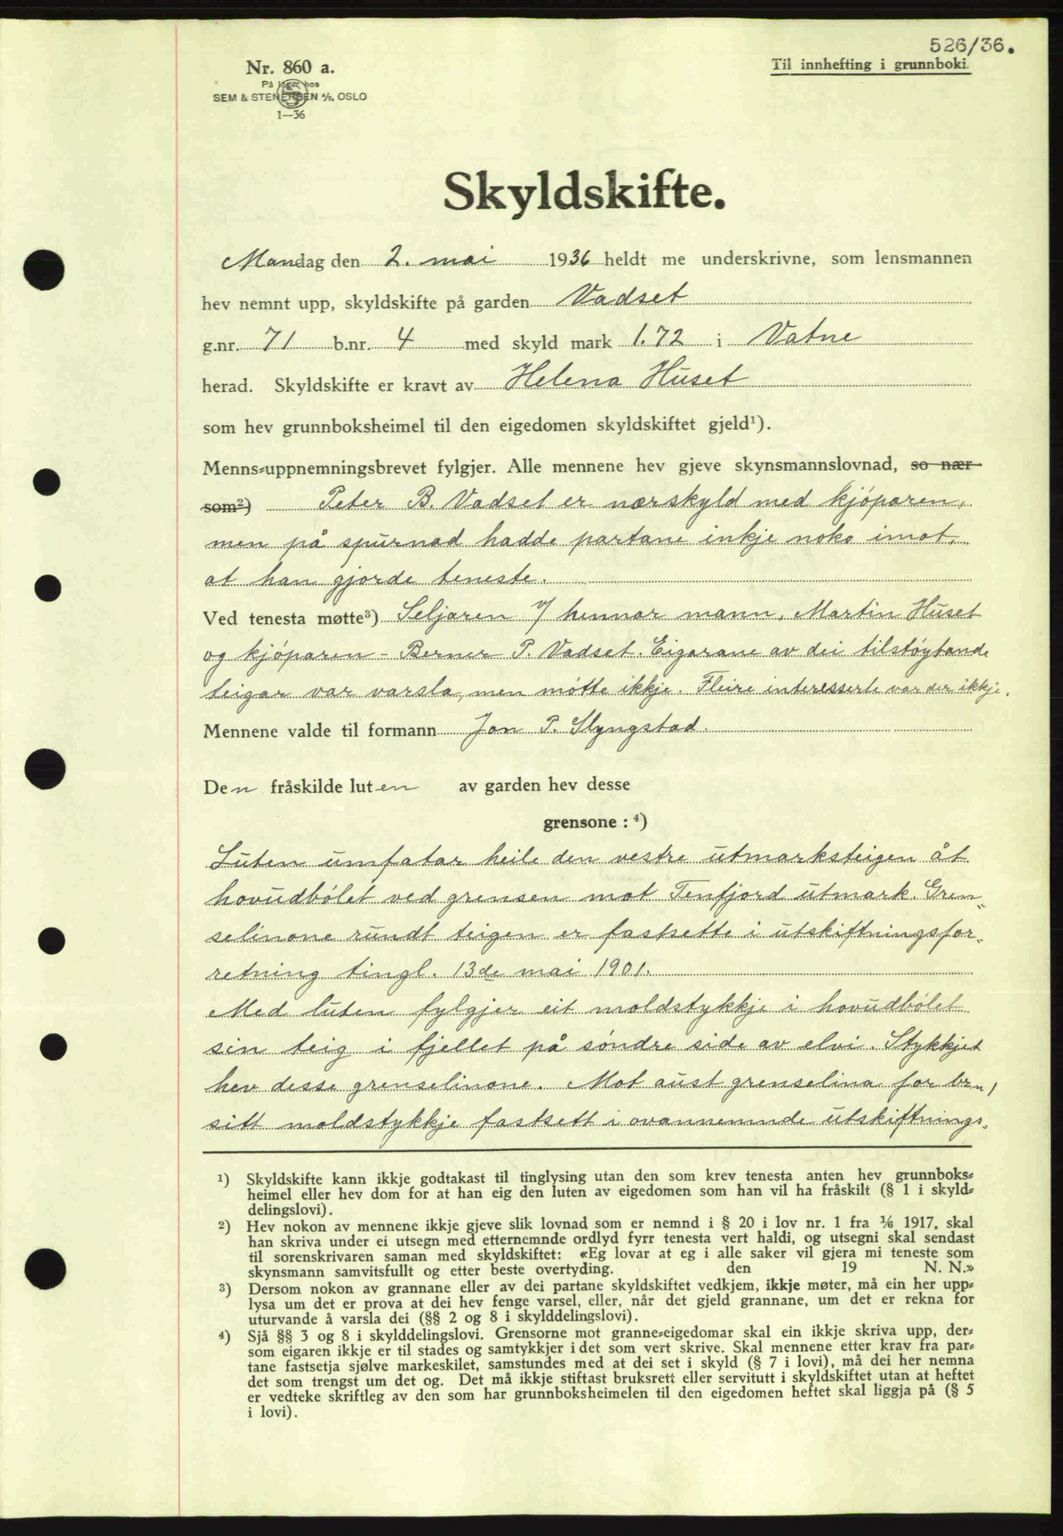 526/36.
Nr. 860 a.
På lager hos
SEM & STENERSEN A/S, OSLO
1—36
Til innhefting i grunnboki.
Skyldskifte.
Mandag den 2. mai 1936 heldt me underskrivne, som lensmannen
hev nemnt upp, skyldskifte på garden Vadset
g.nr. 71 b.nr. 4 med skyld mark 1.72 i Vatne
herad. Skyldskifte er kravt av Helena Huset
som hev grunnboksheimel til den eigedomen skyldskiftet gjeld¹).
Menns⸗uppnemningsbrevet fylgjer. Alle mennene hev gjeve skynsmannslovnad, so nær
som²) Peter B. Vadset er nærskyld med kjöparen,
men på spurnad hadde partane inkje noko imot,
at han gjorde teneste.
Ved tenesta møtte³) Seljaren v/ hennar mann, Martin Huset
og kjöparen - Berner P. Vadset. Eigarane av dei tilstøytande
teigar var varsla, men mötte ikkje. Fleire interesserte var der ikkje.
Mennene valde til formann Jon P. Slyngstad.
Den fråskilde luten av garden hev desse
grensone : ⁴)
Luten umfatar heile den vestre utmarksteigen åt
hovudbölet ved grensen mot Tenfjord utmark. Gren-
selinone rundt teigen er fastsette i utskiftningsfor-
retning tingl. 13de mai 1901.
Med luten fylgjer eit moldstykkje i hovudbölet
sin teig i fjellet på söndre side av elvi. Stykkjet
hev desse grenselinone. Mot aust grenselina for brn 1
sitt moldstykkje fastsett i ovannemnde utskiftnings-
¹) Skyldskifte kann ikkje godtakast til tinglysing utan den som krev tenesta anten hev grunnboks⸗
heimel eller hev dom for at han eig den luten av eigedomen som han vil ha fråskilt (§ 1 i skyld⸗
delingslovi).
²) Hev nokon av mennene ikkje gjeve slik lovnad som er nemnd i § 20 i lov nr. 1 fra ¹⁄₆ 1917, skal
han skriva under ei utsegn med etternemnde ordlyd fyrr tenesta vert haldi, og utsegni skal sendast
til sorenskrivaren saman med skyldskiftet: «Eg lovar at eg i alle saker vil gjera mi teneste som
skynsmann samvitsfullt og etter beste overtyding. den 19 N. N.»
³) Dersom nokon av grannane eller av dei partane skyldskiftet vedkjem, ikkje møter, må ein her upp⸗
lysa um det er prova at dei hev fenge varsel, eller, når det gjeld grannane, um det er rekna for
uturvande å varsla dei (§§ 2 og 8 i skylddelingslovi).
⁴) Sjå §§ 3 og 8 i skylddelingslovi. Grensorne mot granne⸗eigedomar skal ein ikkje skriva upp, der⸗
som eigaren ikkje er til stades og samtykkjer i det som vert skrive. Skal mennene etter krav fra par⸗
tane fastsetja sjølve markeskilet, samstundes med at dei set i skyld (§ 7 i lovi), må dei her nemna
det som trengst um det og. Det må ikkje stiftast bruksrett eller servitutt i skyldskiftet utan at heftet
er vedteke skriftleg av den som har grunnboksheimelen til den eigedomen heftet skal liggja på (§ 5
i lovi).